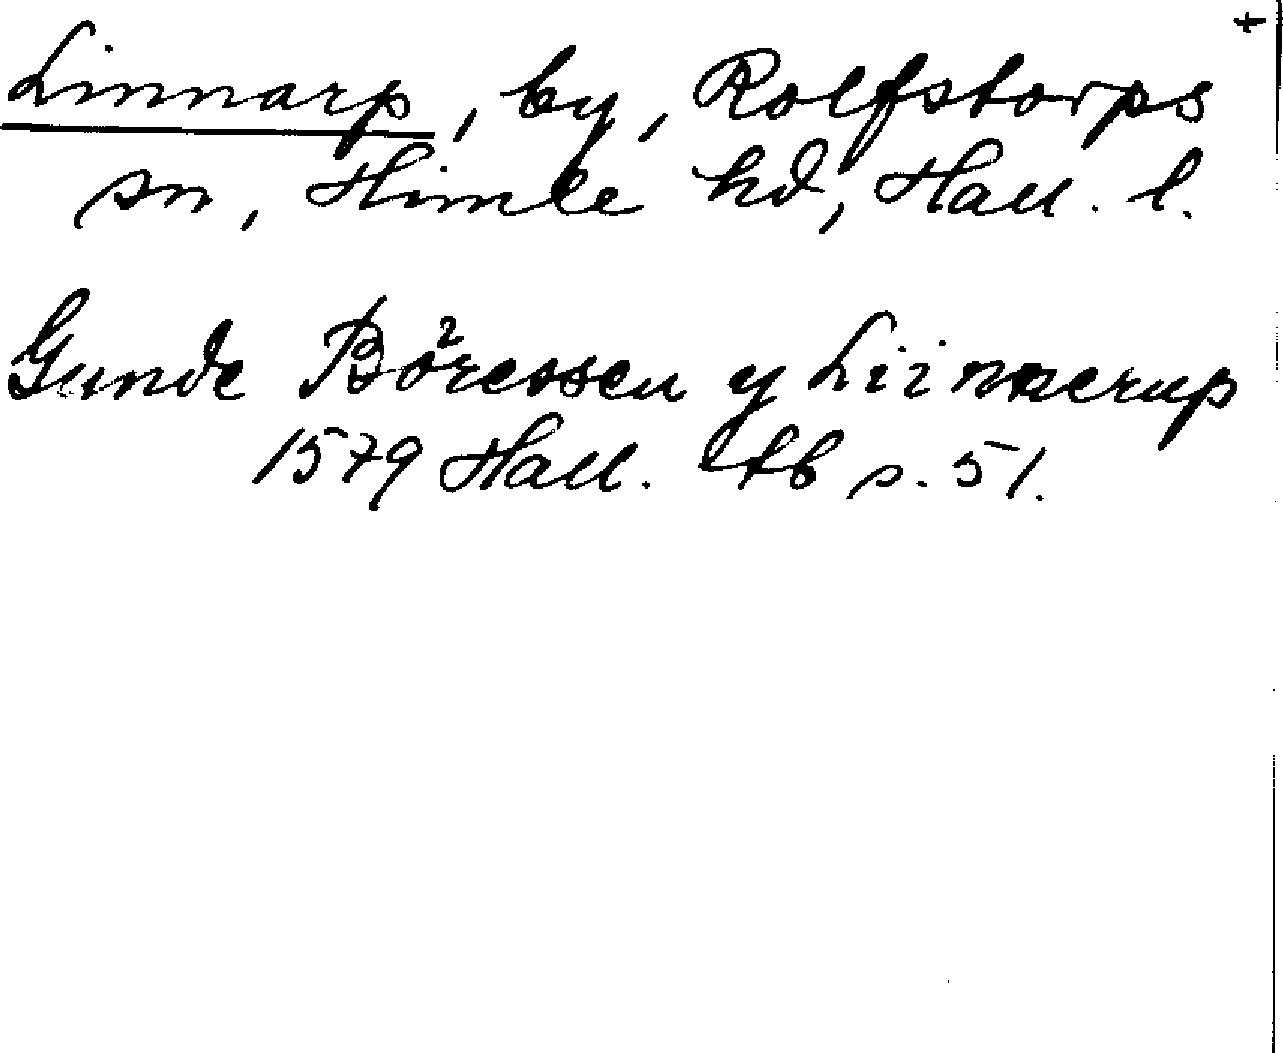 Linnarp, by, Rolfstorps
sn, Himle hd, Hall. l.
Gunde Böressen y Liinnerup
1579 Hall. tb s. 51.